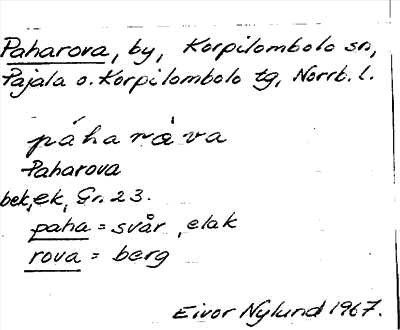 Paharova, by, Korpilombolo sn,
Pajala o. Korpilombolo tg, Norrb. l.
páharàva
Paharova
bek, ek, Gr. 23.
paha = svår, elak
rova = berg
Eivor Nylund 1967.